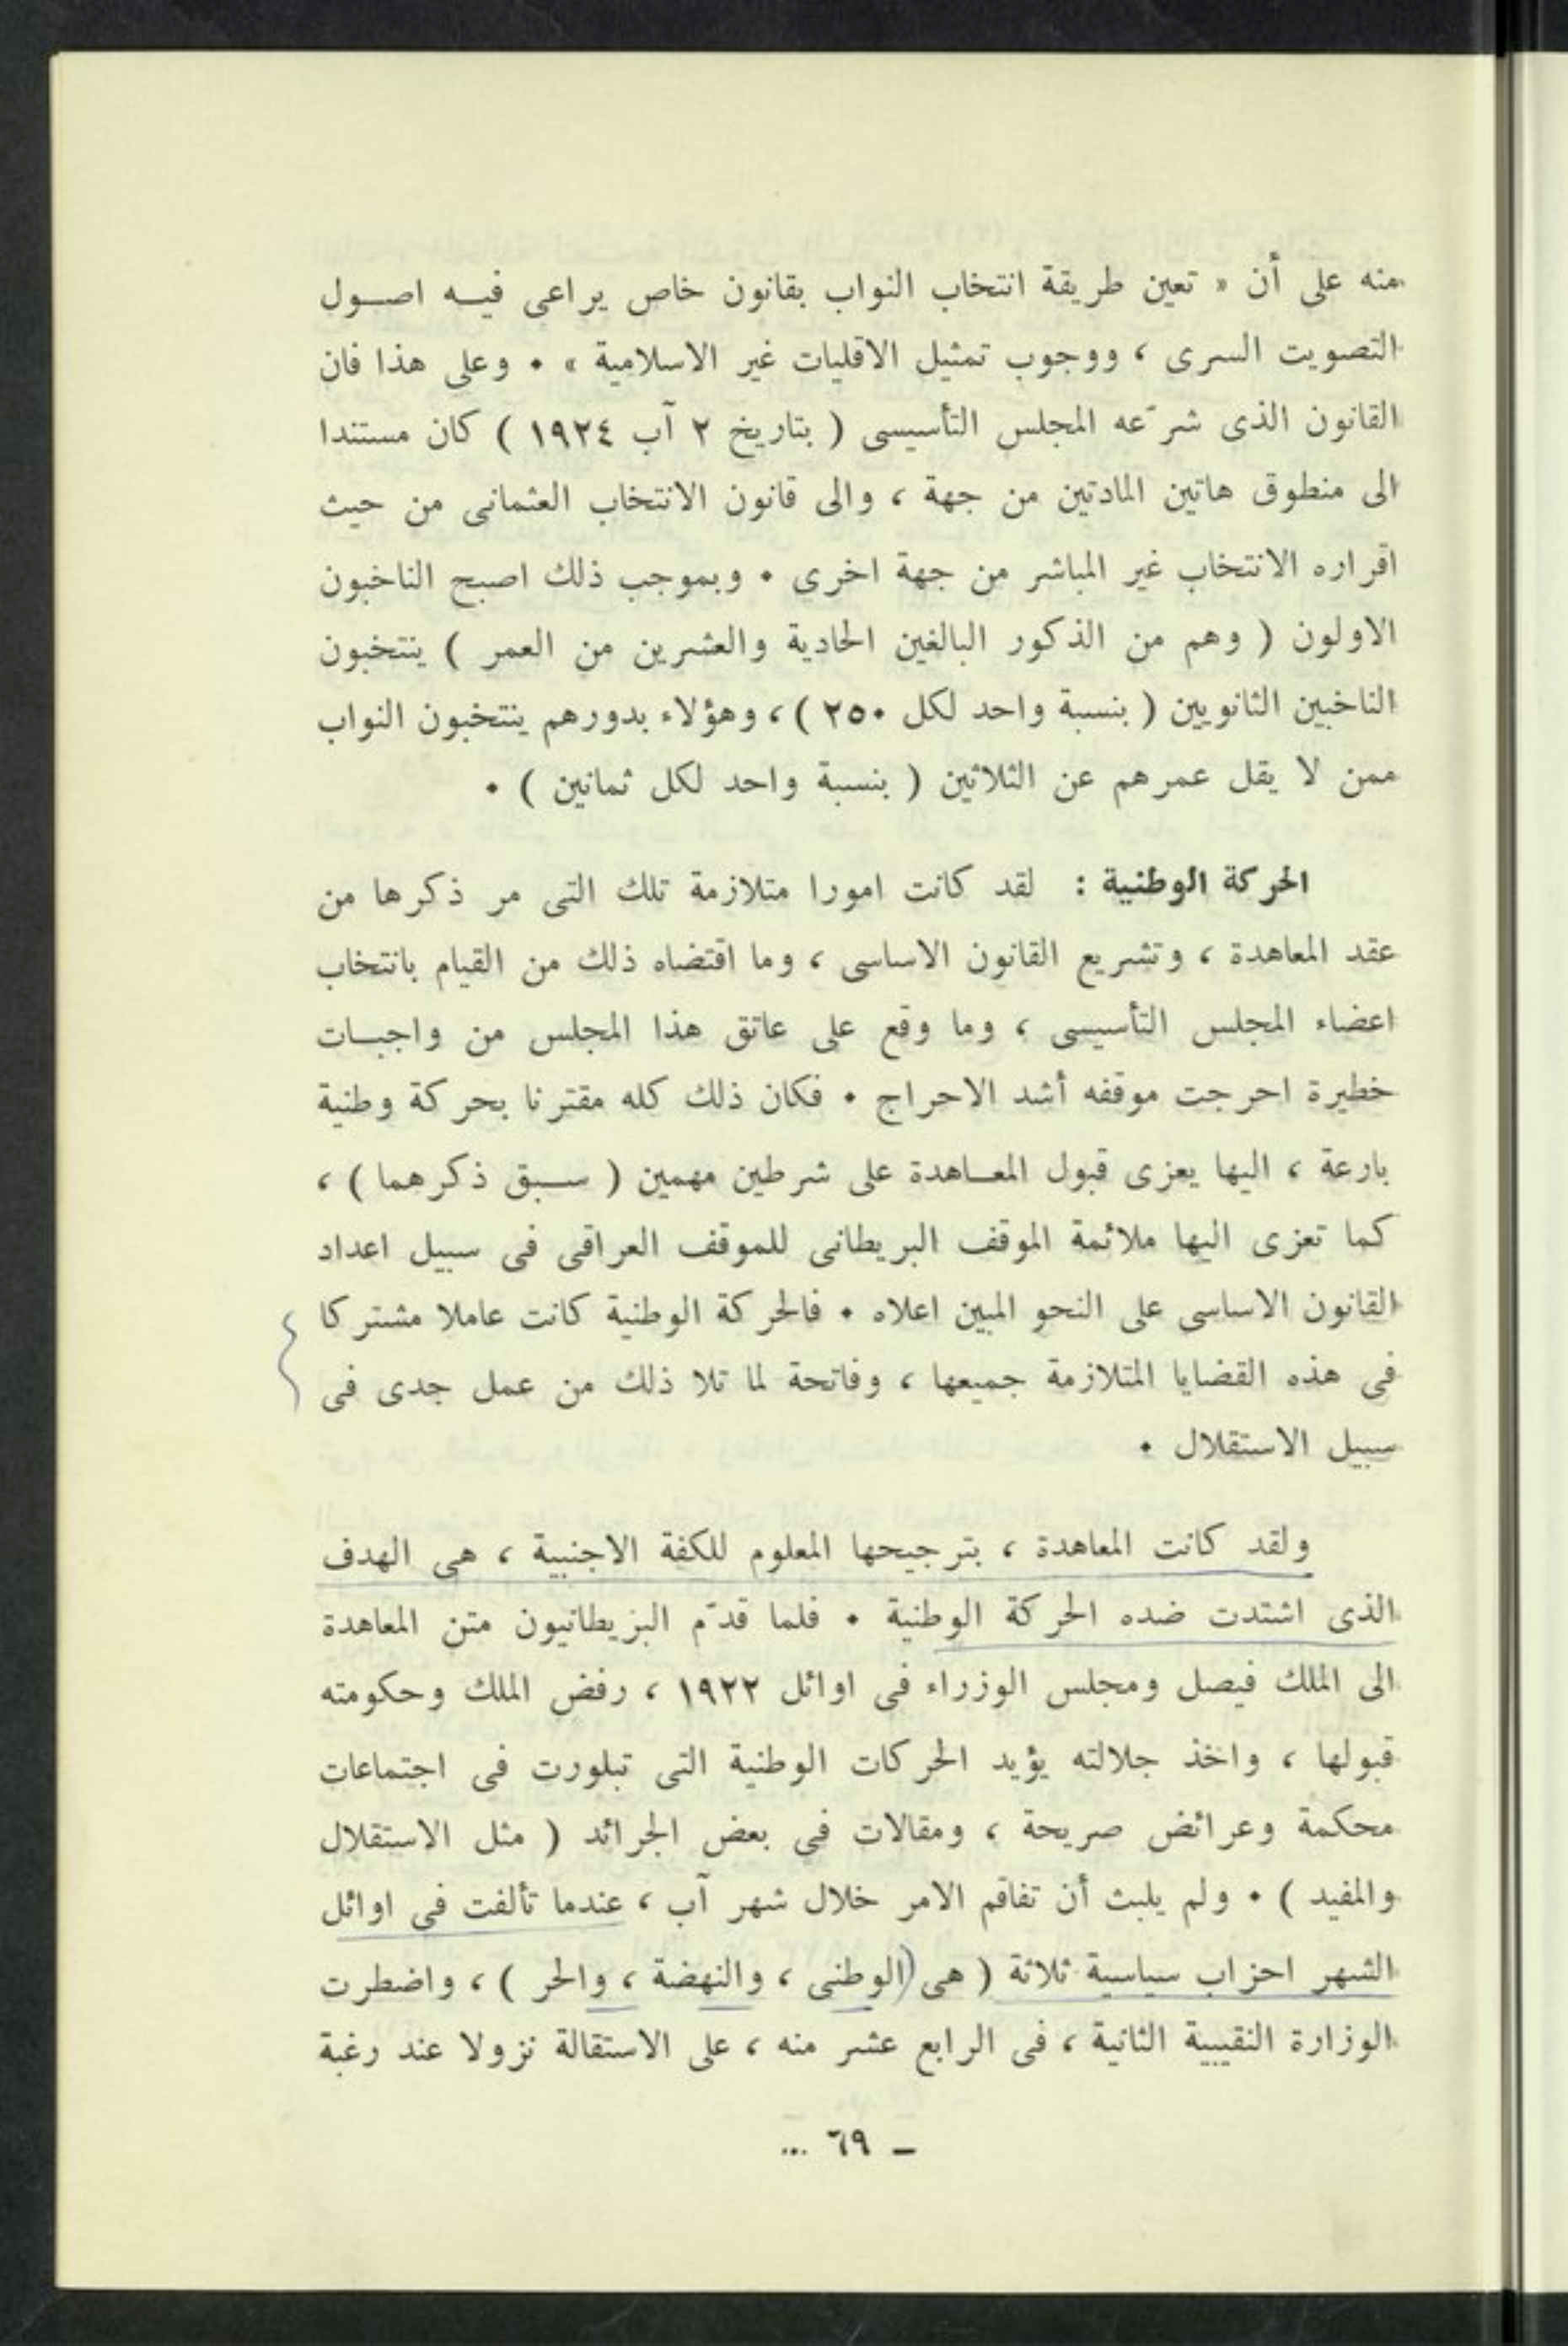 منه على أن « تعين طريقة انتخاب النواب بقانون خاص يراعى فيه اصول
التصويت السرى ، ووجوب تمثيل الاقليات غير الاسلامية » • وعلى هذا فان
القانون الذى شرَّعه المجلس التأسيسى ( بتاريخ ٢ آب ١٩٢٤ ) كان مستندا
الى منطوق هاتين المادتين من جهة ، والى قانون الانتخاب العثمانى من حيث
اقراره الانتخاب غير المباشر من جهة اخرى • وبموجب ذلك اصبح الناخبون
الاولون ( وهم من الذكور البالغين الحادية والعشرين من العمر ) ينتخبون
الناخبين الثانويين ( بنسبة واحد لكل ٢٥٠ ) ، وهؤلاء بدورهم ينتخبون النواب
ممن لا يقل عمرهم عن الثلاثين ( بنسبة واحد لكل ثمانين ) •
الحركة الوطنية : لقد كانت امورا متلازمة تلك التى مر ذكرها من
عقد المعاهدة ، وتشريع القانون الاساسى ، وما اقتضاه ذلك من القيام بانتخاب
اعضاء المجلس التأسيسى ، وما وقع على عاتق هذا المجلس من واجبات
خطيرة احرجت موقفه أشد الاحراج • فكان ذلك كله مقترنا بحركة وطنية
بارعة ، اليها يعزى قبول المعاهدة على شرطين مهمين ( سبق ذكرهما ) ،
كما تعزى اليها ملائمة الموقف البريطانى للموقف العراقى فى سبيل اعداد
القانون الاساسى على النحو المبين اعلاه • فالحركة الوطنية كانت عاملا مشتركا
فى هذه القضايا المتلازمة جميعها ، وفاتحة لما تلا ذلك من عمل جدى فى
سبيل الاستقلال •
ولقد كانت المعاهدة ، بترجيحها المعلوم للكفة الاجنبية ، هى الهدف
الذى اشتدت ضده الحركة الوطنية • فلما قدّم البريطانيون متن المعاهدة
الى الملك فيصل ومجلس الوزراء فى اوائل ١٩٢٢ ، رفض الملك وحكومته
قبولها ، واخذ جلالته يؤيد الحركات الوطنية التى تبلورت فى اجتماعات
محكمة وعرائض صريحة ، ومقالات فى بعض الجرائد ( مثل الاستقلال
والمفيد ) • ولم يلبث أن تفاقم الامر خلال شهر آب ، عندما تألفت فى اوائل
الشهر احزاب سياسية ثلاثة ( هى الوطنى ، والنهضة ، والحر ) ، واضطرت
الوزارة النقيبية الثانية ، فى الرابع عشر منه ، على الاستقالة نزولا عند رغبة
– ٦٩ ...